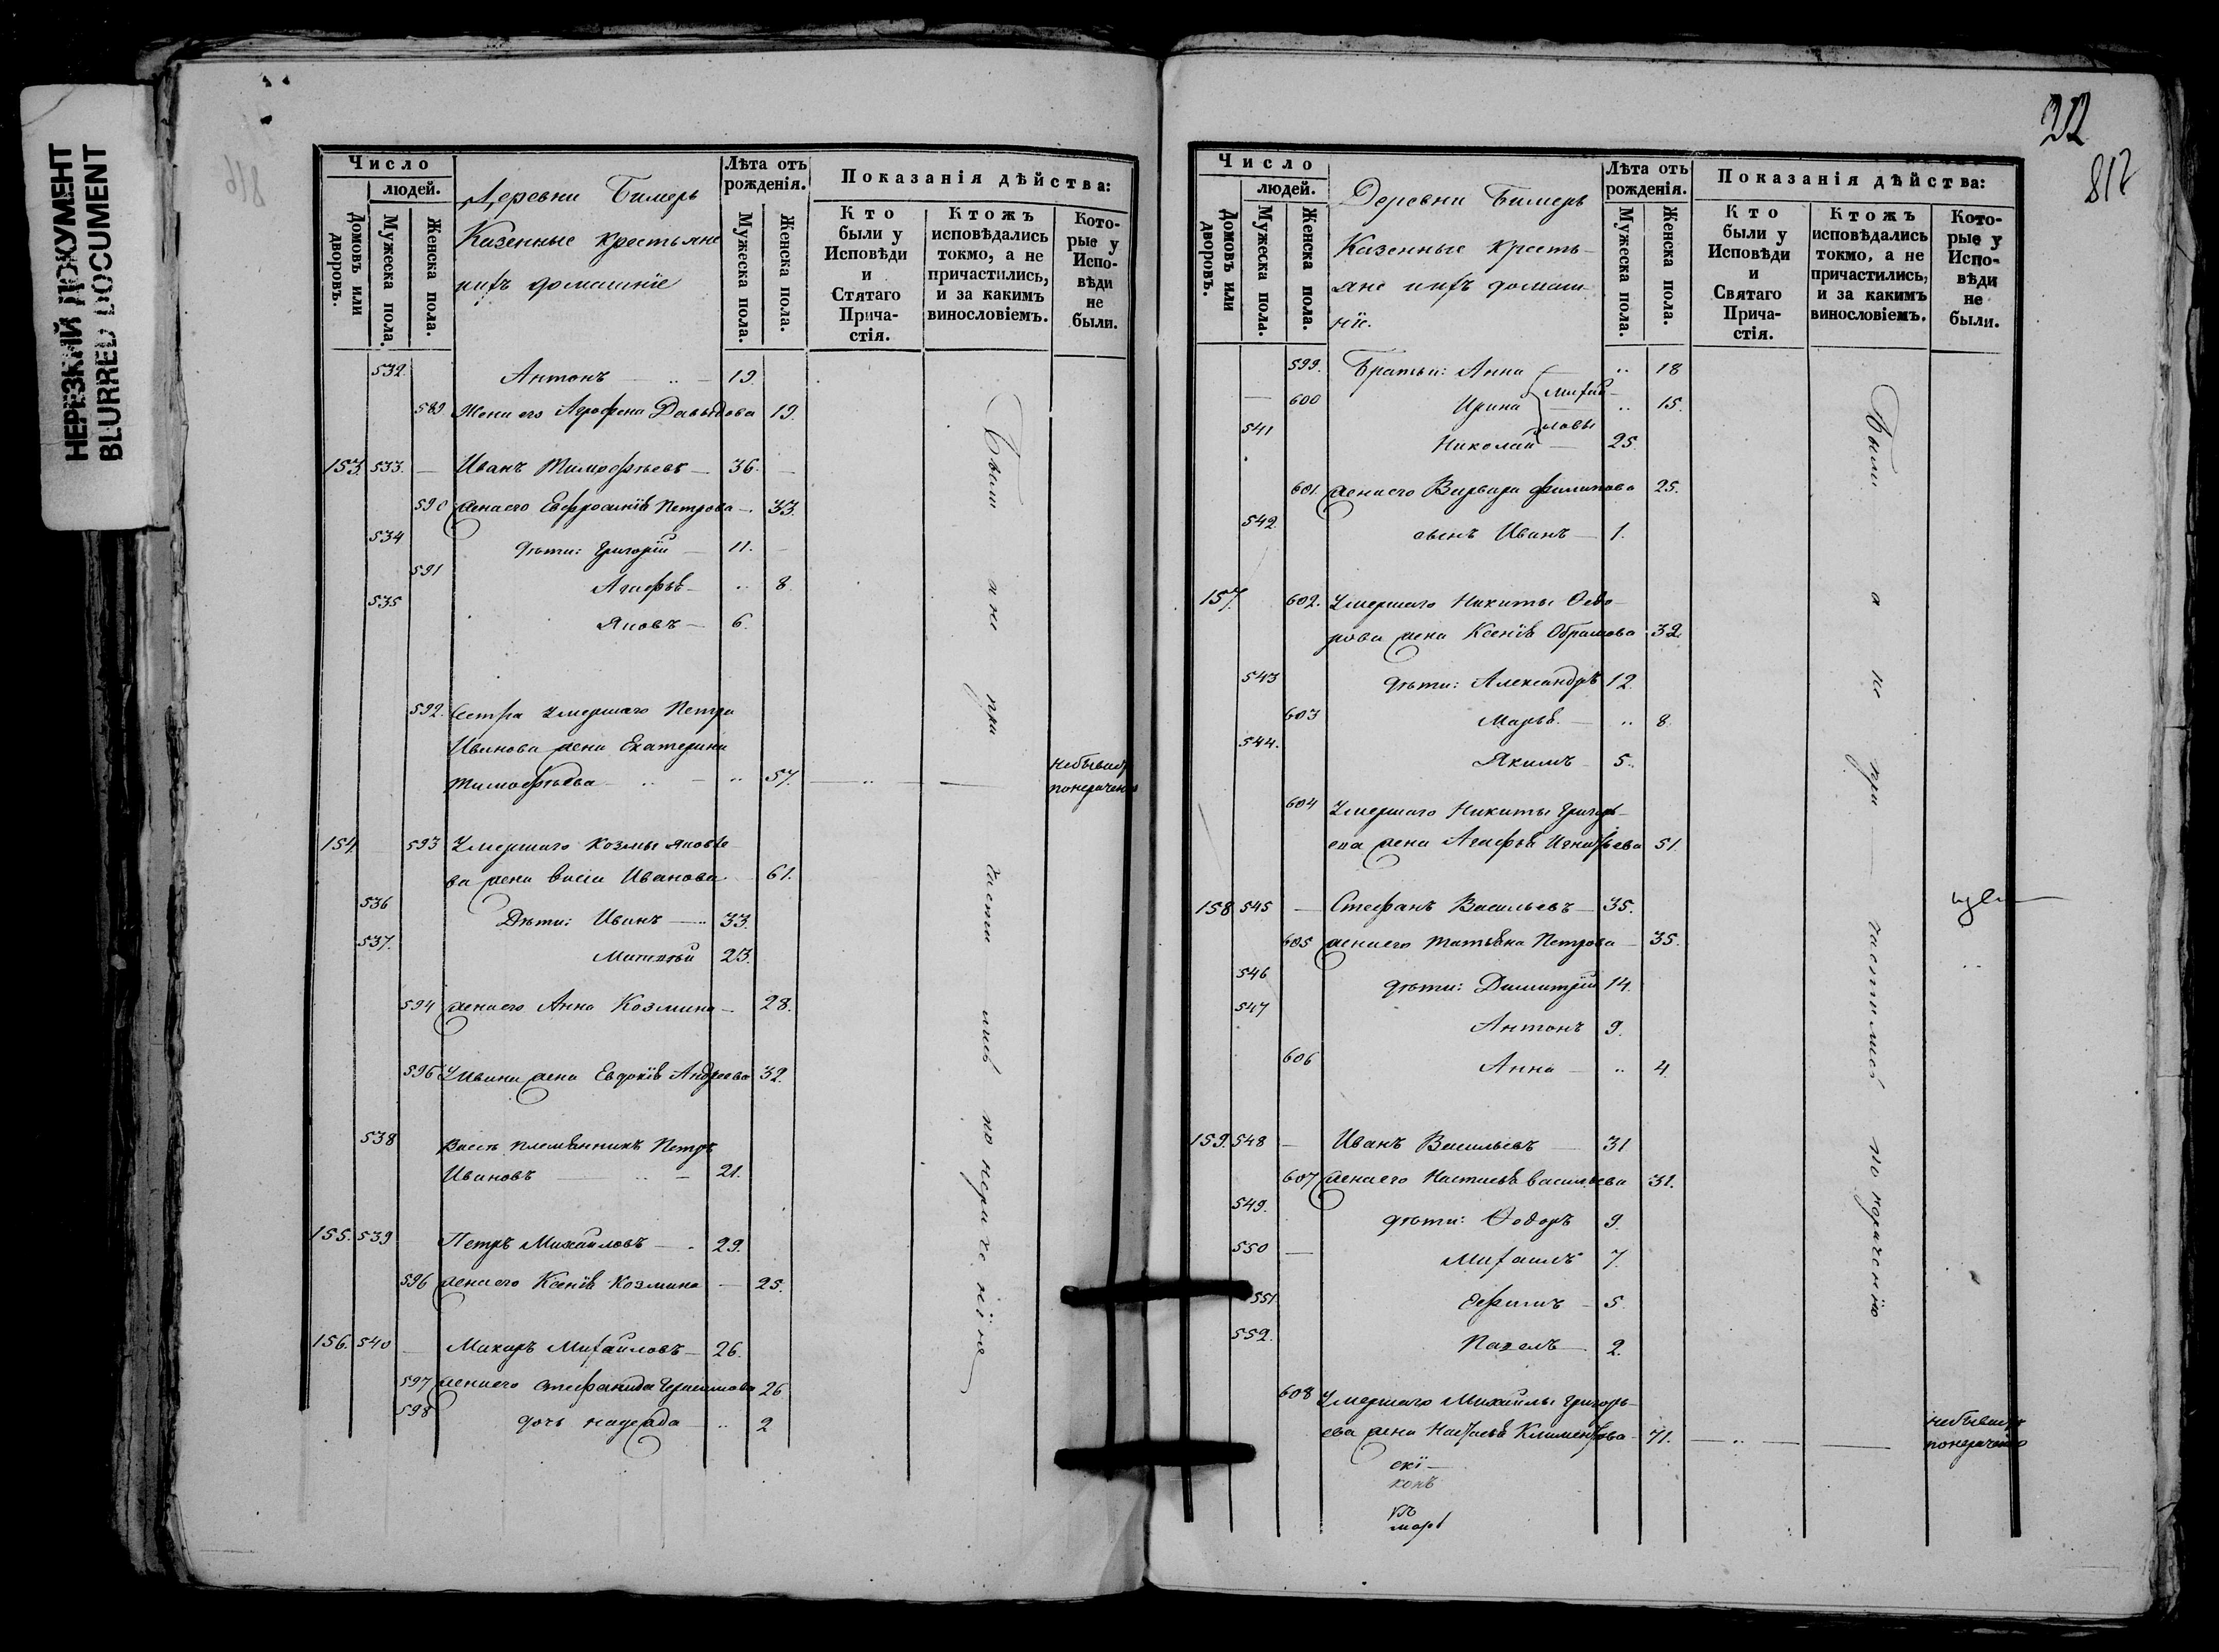 НЕРЕЗКИЙ ДОКУМЕНТ
BLURRED DOCUMENT
Число
людей.
Домовъ или дворовъ.
Мужеска пола.
Женска пола.
Деревни Бимерь
Казенные крестьяне
ихъ домашніе
Лѣта отъ рожденія.
Мужеска пола.
Женска пола.
Показанія дѣйства:
Кто были у Исповѣди и Стятаго Прича-стія.
Ктожъ исповѣдались токмо, а не причастились, и за какимъ винословіемъ.
Кото-рые у Испо-вѣди не были.
532. Антонъ — 19.
589 Жена его Агрофена Давыдова 19.
153. 533. — Иванъ Тимофѣевъ — 36. —
590 жена его Евфросинія Петрова — 33.
534 дѣти: Григорій — 11. —
591 Агафья — 8.
535 Яковъ — 6.
592. Сестра умершаго Петра
Иванова жена Екатерина
Тимофѣева — 57. — небывши
понераченію
154. 593 Умершаго Козмы Яковле-
ва жена Васса Иванова 61.
536 Дѣти: Иванъ — 33.
537. Матвѣй 23.
594 жена его Анна Козмина — 28.
596 У Ивана жена Евдокія Андреева 32.
538 Вассы племянникъ Петръ
Ивановъ — 21.
155. 539 Петръ Михайловъ — 29.
596 жена его Ксенія Козмина — 25.
156. 540 — Макаръ Михайловъ — 26.
597 жена его Стефанида Герасимова 26
598 дочь Надежда 2
Были а не при частились по нераченію
212
812
Число
людей.
Домовъ или дворовъ.
Мужеска пола.
Женска пола.
Деревни Бимерь
Казенные кресть-
яне ихъ домаш-
ніе.
Лѣта отъ рожденія.
Мужеска пола.
Женска пола.
Показанія дѣйства:
Кто были у Исповѣди и Святаго Прича-стія.
Ктожъ исповѣдались токмо, а не причастились, и за какимъ винословіемъ.
Кото-рые у Испо-вѣди не были.
599. Братьи: Анна — 18
600 Ирина Михай-
ловы 15.
541 Николай — 25.
601. жена его Варвара Филипова 25.
542. сынъ Иванъ — 1.
157. 602. Умершаго Никиты Ѳедо-
рова жена Ксенія Обрамова 32.
543 дѣти: Александръ 12.
603 Марья — 8.
544. Якимъ — 5.
604 Умершаго Никиты Григорь-
ева жена Агафья Игнатьева 51.
158 545 — Стефанъ Васильевъ — 35.
605 жена его Татьяна Петрова — 35.
546 дѣти: Димитрій 14.
547 Антонъ 9.
606 Анна — 4.
159. 548 — Иванъ Васильевъ — 31
607 жена его Настасья Васильева 31.
549. дѣти: Ѳодоръ 9.
550 — Михаилъ 7.
551 Ефимъ — 5.
552. Павелъ — 2.
608 Умершаго Михайлы Григорь-
ева жена Настасья Климентова — 71. — небывши
понераченію
Были а не при — частились по нераченію